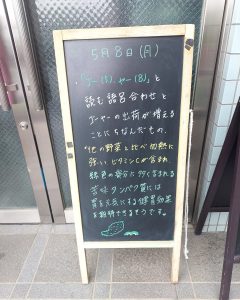 5月8日(月)
「ゴー(5)、ヤー(8)」と
読む語呂合わせと
ゴーヤーの出荷が増える
ことにちなんだもの。
他の野菜と比べ加熱に
強いビタミンCが含まれ、
緑色の部分に多く含まれる
苦味タンパク質には
胃を元気にする健胃効果
を期待できるそうです。